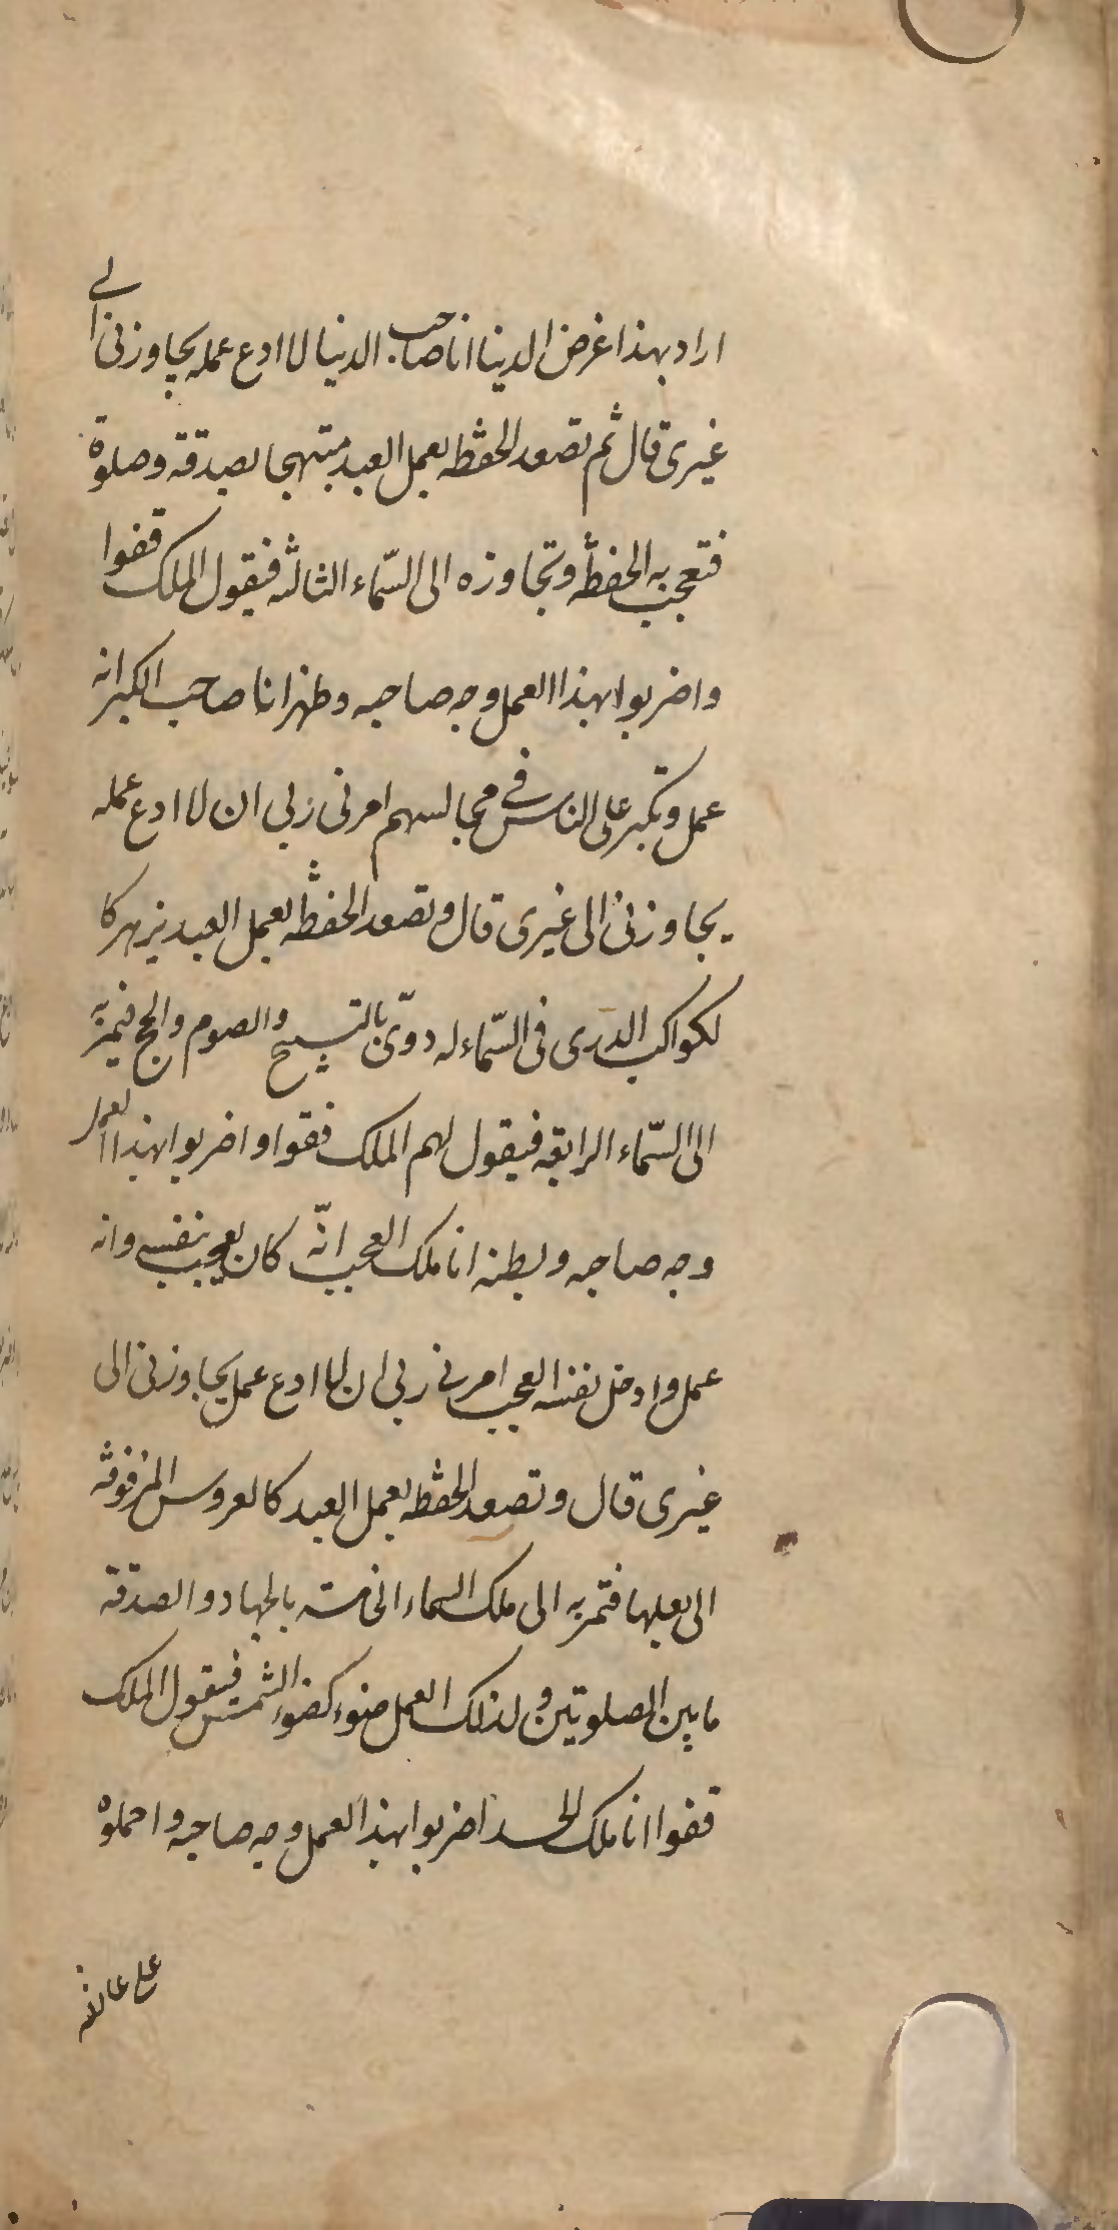 اراد بهذا غرض الدينا انا صاحب الدنيا لا ادع عمله يجاوزنى الى
غيرى قال ثم تصعد الحفظه بعمل العبد مبتهجا بصدقة وصلوة
فتعجب به الحفظة وتجاوزه الى السّماء الثالثه فيقول الملك قفوا
واضربوا بهذا العمل وجه صاحبه وظهره انا صاحب الكبر انه
عمل وتكبر على الناس فى مجالسهم امرنى ربى ان لا ادع عمله
يجاوزنى الى غيرى قال وتصعد الحفظه بعمل العبد يزهر كا
لكواكب الدرى فى السّماء له دوىّ بالتسبيح والصوم والحج فيمر به
الى السّماء الرابعه فيقول لهم الملك فقوا واضربوا بهذا العمل
وجه صاحبه وبطنه انا ملك العجب انّه كان يعجب بنفسه وانه
عمل وادخل نفسه العجب امرنى ربى ان لا ادع عمل يجاوزنى الى
غيرى قال وتصعد الحفظه بعمل العبد كالعروس المزفوفه
الى بعلها فتمر به الى ملك السماء الخامسه بالجهاد والصدقة
ما بين الصلوتين ولذلك العمل ضوء كضوء الشمس فيقول الملك
قفوا انا ملك الحسد اضربوا بهذا العمل وجه صاحبه واحملوه
على عاتقه